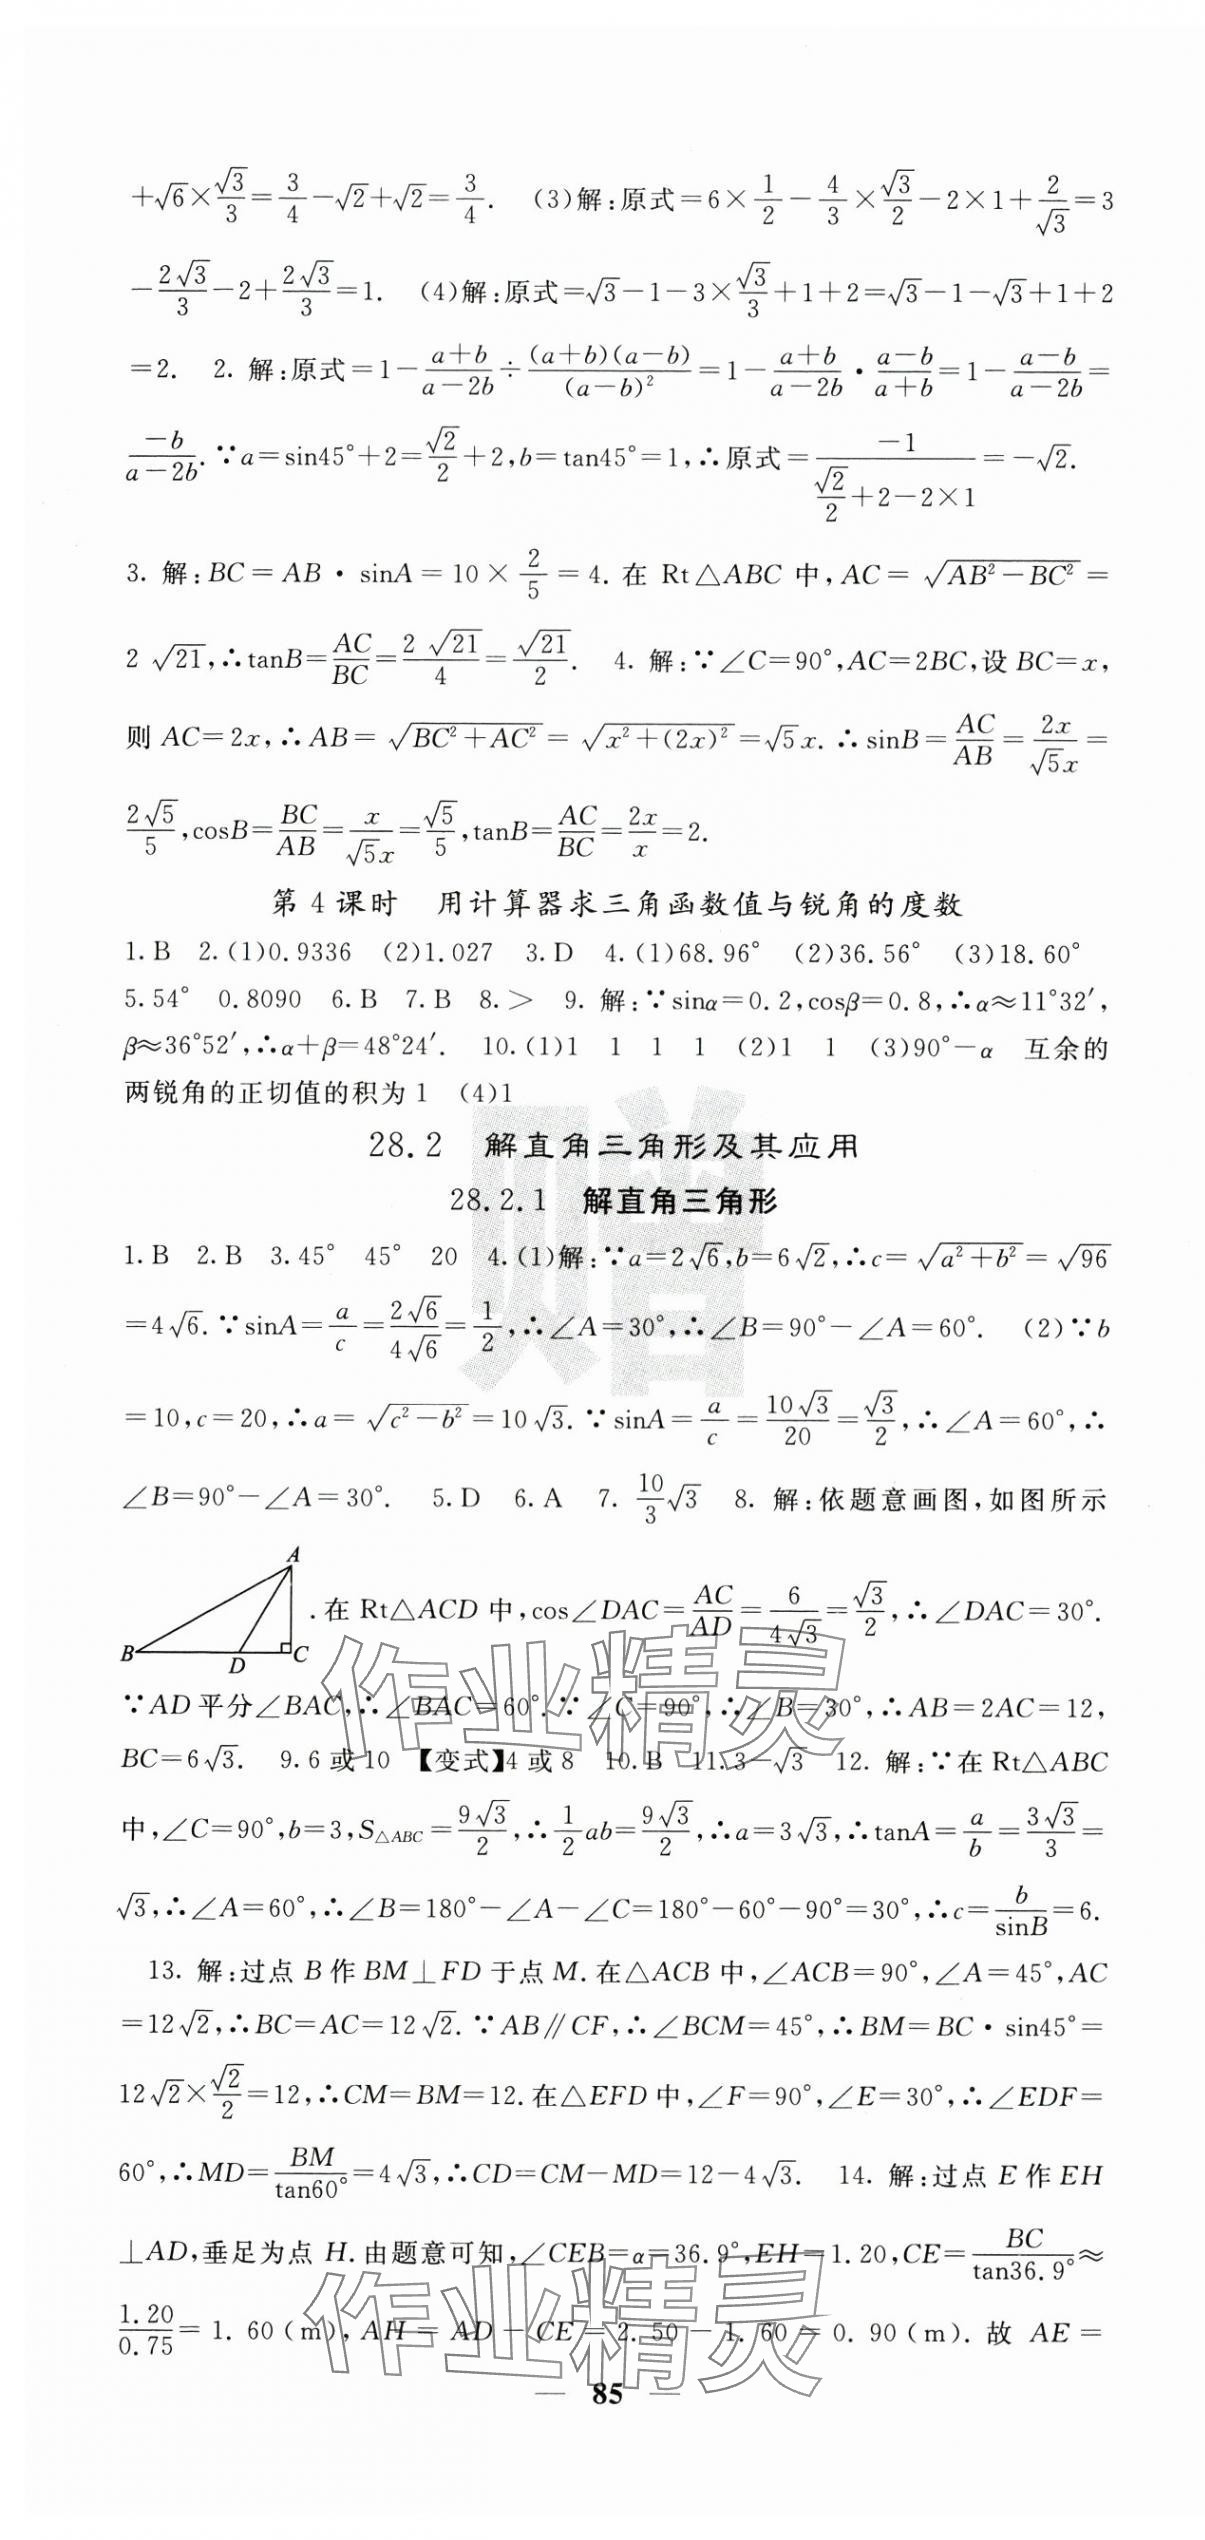 +√6×√3/3=3/4-√2+√2=3/4. (3)解:原式=6×1/2-4/3×√3/2-2×1+2/√3=3
-2√3/3-2+2√3/3=1. (4)解:原式=√3-1-3×√3/3+1+2=√3-1-√3+1+2
=2. 2. 解:原式=1-(a+b)/(a-2b)÷(a+b)(a-b)/(a-b)²=1-(a+b)/(a-2b)·(a-b)/(a+b)=1-(a-b)/(a-2b)=
-b/(a-2b).∵a=sin45°+2=√2/2+2,b=tan45°=1,∴原式=-1/(√2/2+2-2×1)=-√2.
3. 解:BC=AB·sinA=10×2/5=4. 在 Rt△ABC 中,AC=√(AB²-BC²)=
2√21,∴tanB=AC/BC=2√21/4=√21/2. 4. 解:∵∠C=90°,AC=2BC,设 BC=x,
则 AC=2x,∴AB=√(BC²+AC²)=√(x²+(2x)²)=√5x.∴sinB=AC/AB=2x/√5x=
2√5/5,cosB=BC/AB=x/√5x=√5/5,tanB=AC/BC=2x/x=2.
第 4 课时 用计算器求三角函数值与锐角的度数
1. B 2. (1)0.9336 (2)1.027 3. D 4. (1)68.96° (2)36.56° (3)18.60°
5. 54° 0.8090 6. B 7. B 8. > 9. 解:∵sinα=0.2,cosβ=0.8,∴α≈11°32′,
β≈36°52′,∴α+β=48°24′. 10. (1)1 1 1 1 (2)1 1 (3)90°-α 互余的
两锐角的正切值的积为 1 (4)1
28.2 解直角三角形及其应用
28.2.1 解直角三角形
赠
1. B 2. B 3. 45° 45° 20 4. (1)解:∵a=2√6,b=6√2,∴c=√(a²+b²)=√96
=4√6.∵sinA=a/c=2√6/4√6=1/2,∴∠A=30°,∴∠B=90°-∠A=60°. (2)∵b
=10,c=20,∴a=√(c²-b²)=10√3.∵sinA=a/c=10√3/20=√3/2,∴∠A=60°,∴
∠B=90°-∠A=30°. 5. D 6. A 7. 10/3√3 8. 解:依题意画图,如图所示
A
B D C
.在 Rt△ACD 中,cos∠DAC=AC/AD=6/4√3=√3/2,∴∠DAC=30°.
∵AD 平分∠BAC,∴∠BAC=60°.∵∠C=90°,∴∠B=30°,∴AB=2AC=12,
BC=6√3. 9. 6 或 10 【变式】4 或 8 10. B 11. 3-√3 12. 解:∵在 Rt△ABC
中,∠C=90°,b=3,S△ABC=9√3/2,∴1/2ab=9√3/2,∴a=3√3,∴tanA=a/b=3√3/3=
√3,∴∠A=60°,∴∠B=180°-∠A-∠C=180°-60°-90°=30°,∴c=b/sinB=6.
13. 解:过点 B 作 BM⊥FD 于点 M. 在△ACB 中,∠ACB=90°,∠A=45°,AC
=12√2,∴BC=AC=12√2.∵AB∥CF,∴∠BCM=45°,∴BM=BC·sin45°=
12√2×√2/2=12,∴CM=BM=12. 在△EFD 中,∠F=90°,∠E=30°,∴∠EDF=
60°,∴MD=BM/tan60°=4√3,∴CD=CM-MD=12-4√3. 14. 解:过点 E 作 EH
⊥AD,垂足为点 H. 由题意可知,∠CEB=α=36.9°,EH=1.20,CE=BC/tan36.9°≈
1.20/0.75=1.60(m),AH=AD-CE=2.50-1.60=0.90(m). 故 AE=
作业精灵
作业精灵
— 85 —